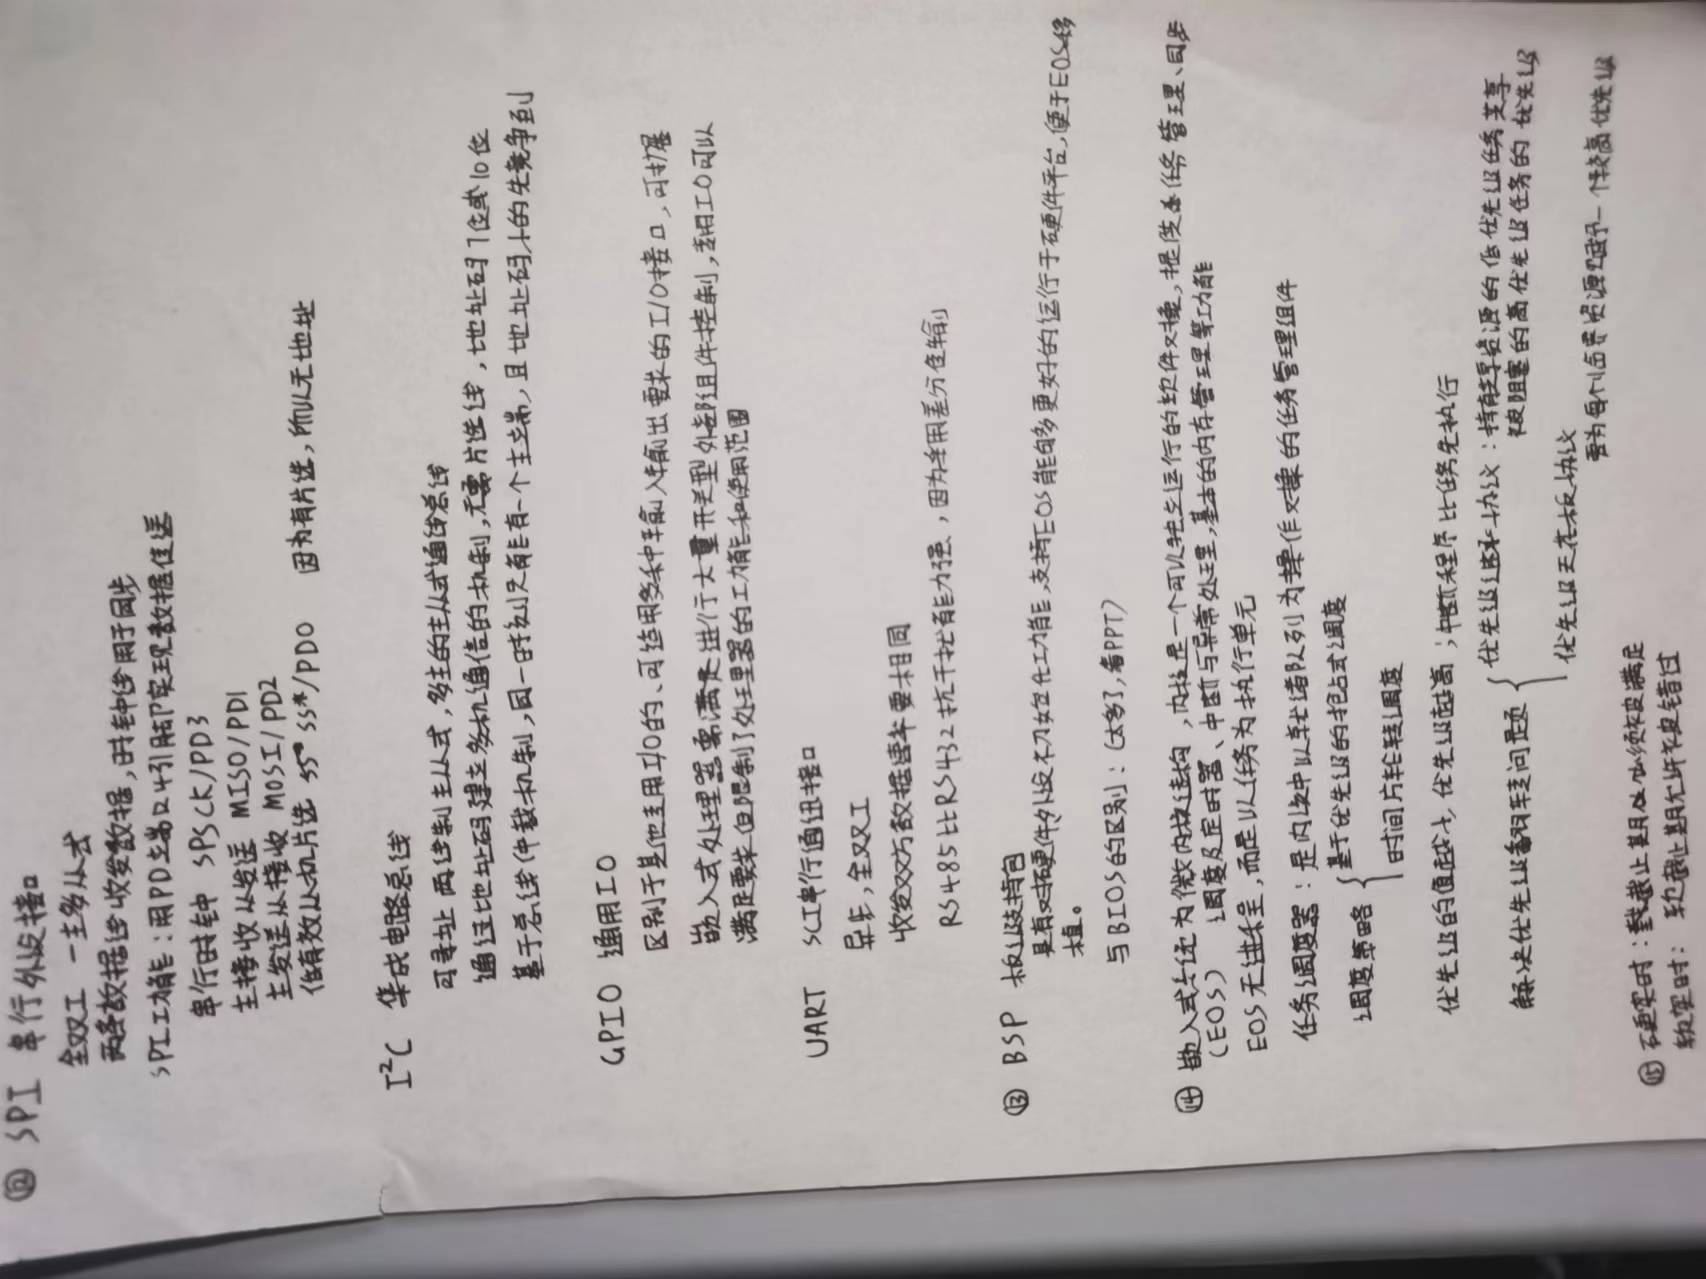 ⑫ SPI 串行外设接口
全双工 一主多从式
两条数据线收发数据,时钟线用于同步
SPI功能:用PD端口4引脚实现数据传送
串行时钟 SPSCK/PD3
主接收从发送 MISO/PD1
主发送从接收 MOSI/PD2
低有效从机片选 SS*/PD0 因为有片选,所以无地址
I²C 集成电路总线
可寻址 两线制主从式,多主的主从式通线总线
通过地址码建立多机通信的机制,无需片选线,地址码7位或10位
基于总线仲裁机制,同一时刻只能有一个主端,且地址码小的先竞争到
GPIO 通用IO
区别于其他专用I/O的、可适用多种输入输出要求的I/O接口,可扩展
嵌入式处理器需满足进行大量开关型外部组件控制,专用IO可以
满足要求但限制了处理器的功能和使用范围
UART SCI串行通讯接口
异步,全双工
收发双方数据速率要相同
RS485比RS432抗干扰能力强,因为采用差分传输
⑬ BSP 板级支持包
具有对硬件外设初始化功能,支持EOS能够更好的运行于硬件平台,便于EOS移
植。
与BIOS的区别:(太多了,看PPT)
⑭ 嵌入式系统为微内核结构,内核是一个可以独立运行的软件对象,提供多任务管理、同步
(EOS) 调度及定时器、中断与异常处理,基本的内存管理等功能
EOS无进程,而是以任务为执行单元
任务调度器:是内核中以就绪队列为操作对象的任务管理组件
调度策略 { 基于优先级的抢占式调度
时间片轮转调度
优先级的值越小,优先级越高;中断程序比任务先执行
解决优先级翻转问题 { 优先级继承协议:持有共享资源的低优先级任务共享
被阻塞的高优先级任务的优先级
优先级天花板协议
要为每个临界资源赋予一个较高优先级
⑮ 硬实时:截止期必须被满足
软实时:软截止期允许被错过